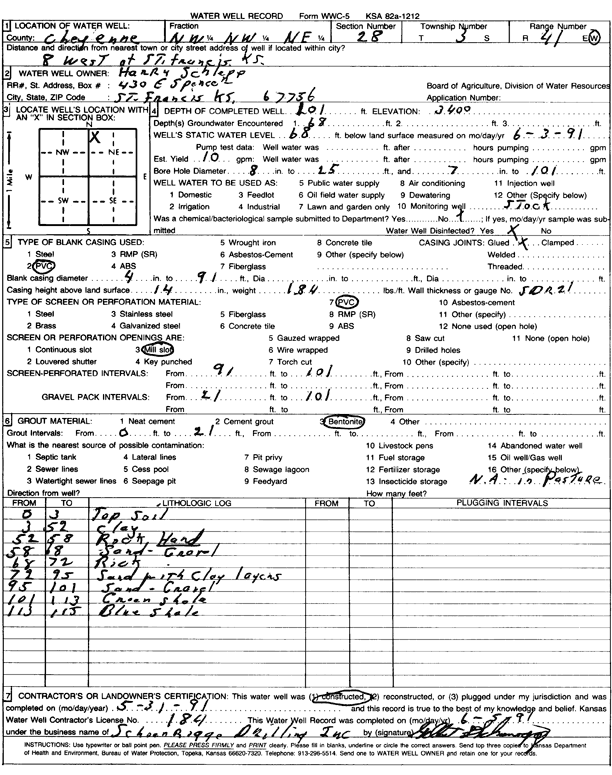 WATER WELL RECORD Form WWC-5 KSA 82a-1212
1 LOCATION OF WATER WELL: Fraction Section Number Township Number Range Number
County: Cheyenne NW ¼ NW ¼ NE ¼ 28 T 3 S R 41 E W
Distance and direction from nearest town or city street address of well if located within city?
8 West of St. Francis KS.
2 WATER WELL OWNER: Harry Schlepp
RR#, St. Address, Box # : 430 E Spencer Board of Agriculture, Division of Water Resources
City, State, ZIP Code : St. Francis KS, 67756 Application Number:
3 LOCATE WELL'S LOCATION WITH AN "X" IN SECTION BOX: 4 DEPTH OF COMPLETED WELL 101 ft. ELEVATION: 3400
Depth(s) Groundwater Encountered 1. 68 ft. 2. ft. 3. ft.
WELL'S STATIC WATER LEVEL 68 ft. below land surface measured on mo/day/yr 6-3-91
Pump test data: Well water was ft. after hours pumping gpm
Est. Yield 10 gpm: Well water was ft. after hours pumping gpm
Bore Hole Diameter 8 in. to 25 ft. and 7 in. to 101 ft.
WELL WATER TO BE USED AS: 5 Public water supply 8 Air conditioning 11 Injection well
1 Domestic 3 Feedlot 6 Oil field water supply 9 Dewatering 12 Other (Specify below)
2 Irrigation 4 Industrial 7 Lawn and garden only 10 Monitoring well Stock
Was a chemical/bacteriological sample submitted to Department? Yes No X ; If yes, mo/day/yr sample was submitted
Water Well Disinfected? Yes X No
N
X
NW NE
W E
SW SE
S
1 Mile
5 TYPE OF BLANK CASING USED: 5 Wrought iron 8 Concrete tile CASING JOINTS: Glued X Clamped
1 Steel 3 RMP (SR) 6 Asbestos-Cement 9 Other (specify below) Welded
2 PVC 4 ABS 7 Fiberglass Threaded
Blank casing diameter 4 in. to 91 ft., Dia in. to ft., Dia in. to ft.
Casing height above land surface 14 in., weight 184 lbs./ft. Wall thickness or gauge No. SDR21
TYPE OF SCREEN OR PERFORATION MATERIAL: 7 PVC 10 Asbestos-cement
1 Steel 3 Stainless steel 5 Fiberglass 8 RMP (SR) 11 Other (specify)
2 Brass 4 Galvanized steel 6 Concrete tile 9 ABS 12 None used (open hole)
SCREEN OR PERFORATION OPENINGS ARE: 5 Gauzed wrapped 8 Saw cut 11 None (open hole)
1 Continuous slot 3 Mill slot 6 Wire wrapped 9 Drilled holes
2 Louvered shutter 4 Key punched 7 Torch cut 10 Other (specify)
SCREEN-PERFORATED INTERVALS: From 91 ft. to 101 ft., From ft. to ft.
From ft. to ft., From ft. to ft.
GRAVEL PACK INTERVALS: From 21 ft. to 101 ft., From ft. to ft.
From ft. to ft., From ft. to ft.
6 GROUT MATERIAL: 1 Neat cement 2 Cement grout 3 Bentonite 4 Other
Grout Intervals: From 0 ft. to 21 ft., From ft. to ft., From ft. to ft.
What is the nearest source of possible contamination: 10 Livestock pens 14 Abandoned water well
1 Septic tank 4 Lateral lines 7 Pit privy 11 Fuel storage 15 Oil well/Gas well
2 Sewer lines 5 Cess pool 8 Sewage lagoon 12 Fertilizer storage 16 Other (specify below)
3 Watertight sewer lines 6 Seepage pit 9 Feedyard 13 Insecticide storage N.A. in Pasture
Direction from well? How many feet?
FROM TO LITHOLOGIC LOG FROM TO PLUGGING INTERVALS
0 3 Top Soil
3 52 Clay
52 58 Rock, Hard
58 68 Sand-Gravel
68 72 Rick
72 95 Sand with Clay layers
95 101 Sand-Gravel
101 113 Green Shale
113 115 Blue Shale
7 CONTRACTOR'S OR LANDOWNER'S CERTIFICATION: This water well was (1) constructed, (2) reconstructed, or (3) plugged under my jurisdiction and was
completed on (mo/day/year) 5-31-91 and this record is true to the best of my knowledge and belief. Kansas
Water Well Contractor's License No. 184 This Water Well Record was completed on (mo/day/yr) 6-5-91
under the business name of Drilling Inc by (signature)
INSTRUCTIONS: Use typewriter or ball point pen. PLEASE PRESS FIRMLY and PRINT clearly. Please fill in blanks, underline or circle the correct answers. Send top three copies to Kansas Department
of Health and Environment, Bureau of Water Protection, Topeka, Kansas 66620-7320. Telephone: 913-296-5514. Send one to WATER WELL OWNER and retain one for your records.